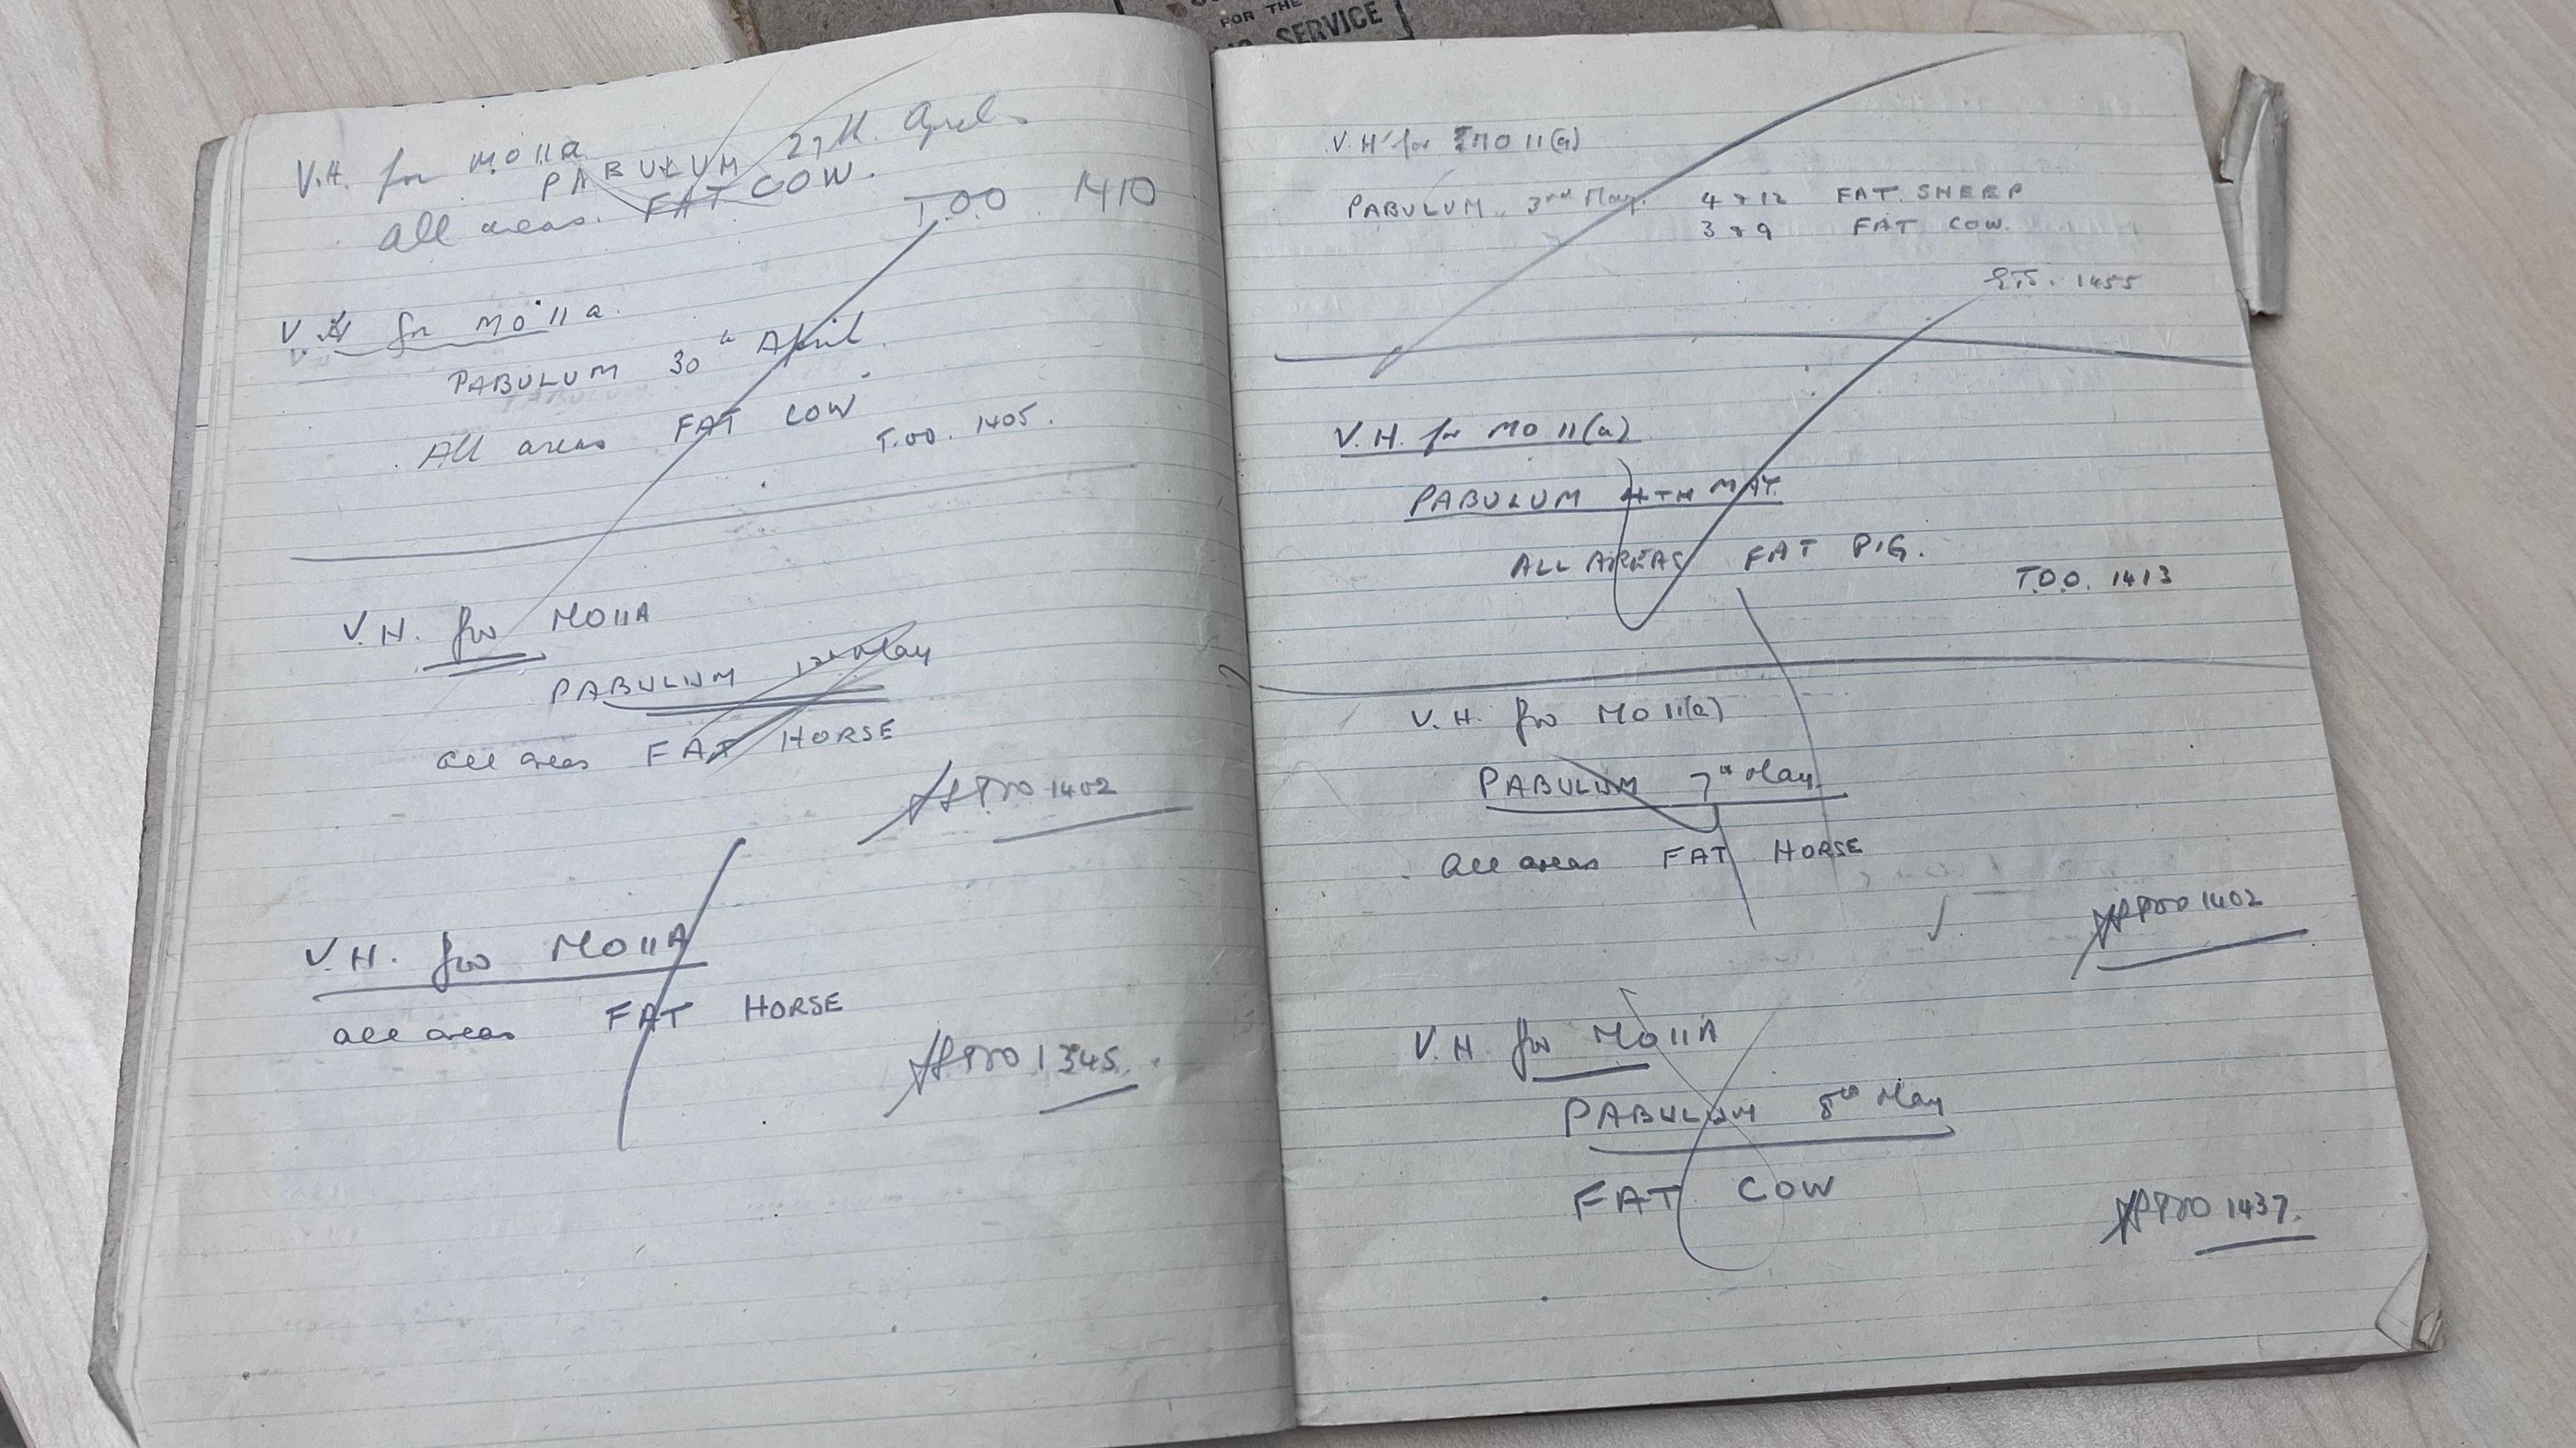 FOR THE
SERVICE
V.H. for MO11a
PABULUM 27th. April
All areas. FAT COW.
T.O.O. 1410
V.H for MO11a.
PABULUM 30th April.
All areas FAT COW
T.OO. 1405.
V.H. for MO11A
PABULUM 1st May
all areas FAT HORSE
1402
V.H. for MO11A
all areas FAT HORSE
1345.
V.H for MO 11(a)
PABULUM. 3rd May. 4 & 12 FAT SHEEP
3 & 9 FAT COW.
1455
V.H. for MO 11(a)
PABULUM 4TH MAY.
ALL AREAS FAT PIG.
T.O.O. 1413
V.H. for MO 11(a)
PABULUM 7th May.
all areas FAT HORSE
1402
V.H for MO11A
PABULUM 8th May
FAT COW
1437.